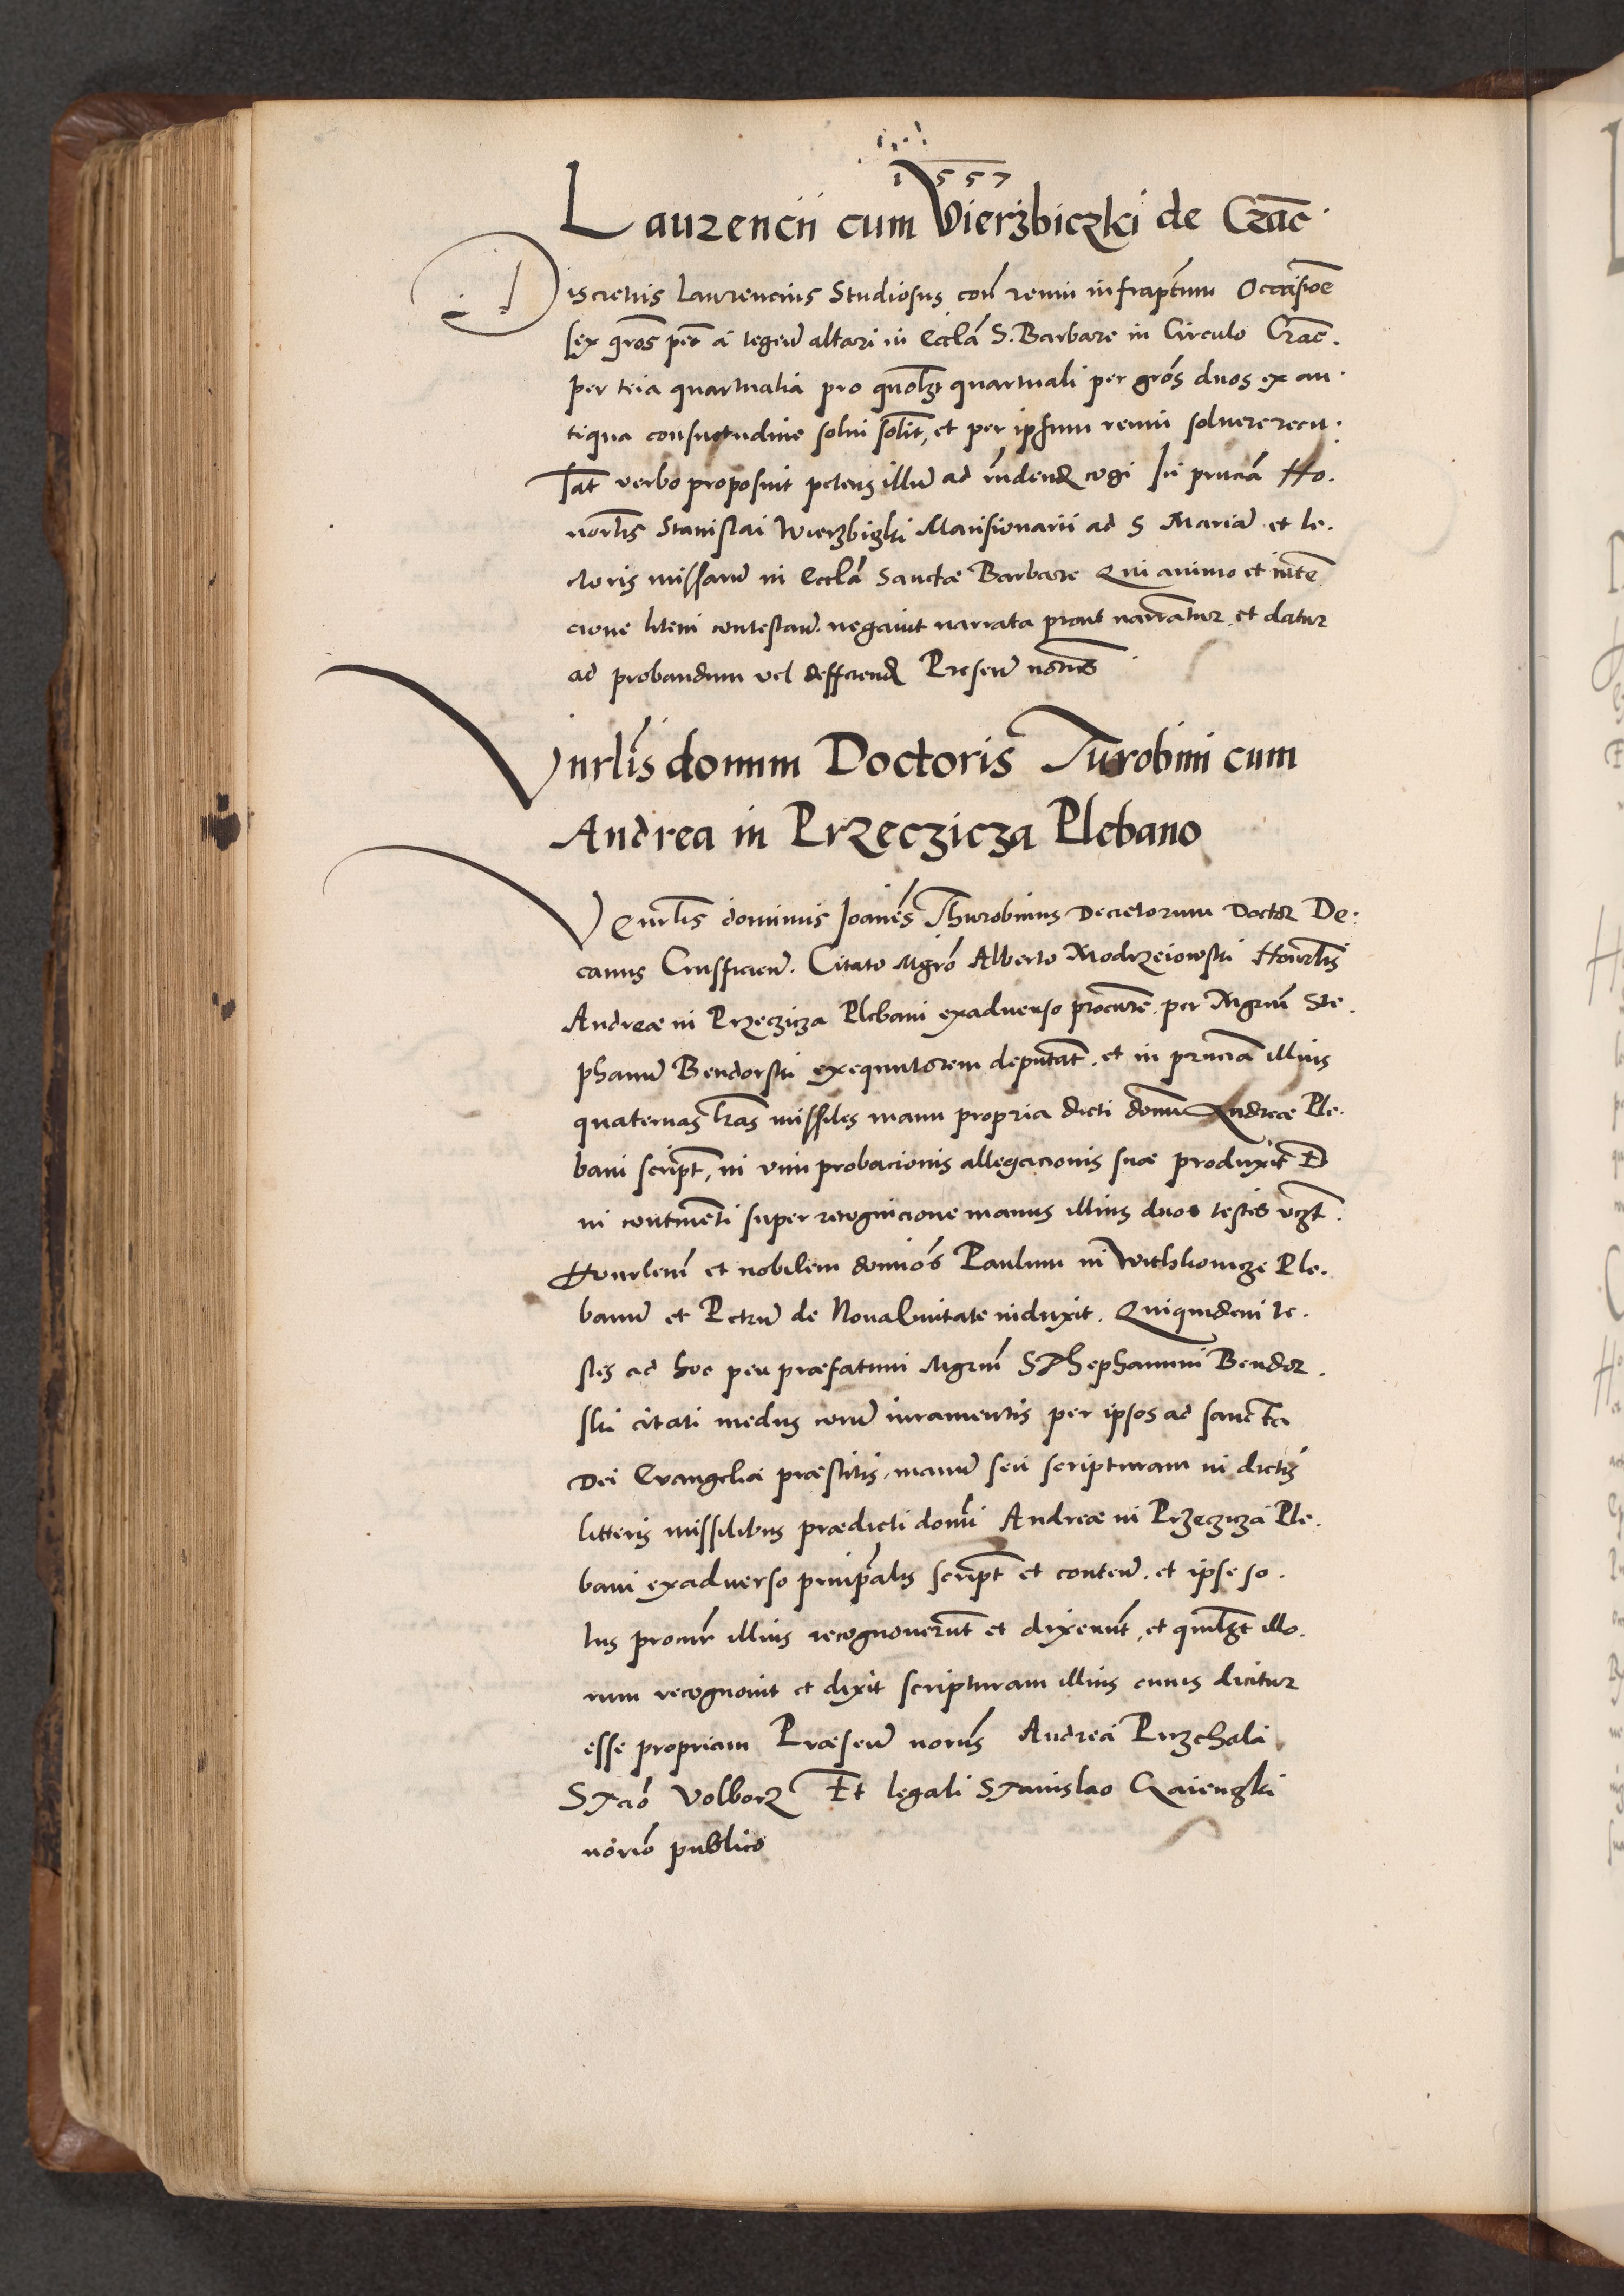 1557
Laurencii cum Vierzbiczki de Crac̄
Discretus Laurencius Studiosus con̄ reum infrascptum Occasioē
sex gros pec̄ a tegen̄ altari in Eccla S. Barbare in Circulo Crac̄.
per tria quartualia pro quolzt quartuali per gros duos ex an
tiqua consuetudine solui solit, et per ipsum reum soluere recu
sat verbo proposuit petens illum ad rndend cogi In pnciā Ho.
norlis Stanislai Wierzbiczki Mansionarii ad S Mariam et le.
ctoris missarum in Eccla Sanctæ Barbare Qui animo et intē
cione litem contestan. negauit narrata prout narrantur et datur
ad probandum vel defficiend Presen nobis
Vnrlis domini Doctoris Turobini cum
Andrea in Przeczicza Plebano
Venrlis dominus Joanes Thurobinus Decretorum Doctor De:
canus Crusfficien. Citato Mgro Alberto Modrzeiowski Honrlis
Andreæ in Przeczicza Plebani exaduerso procure. per Mgrum Ste.
phanum Bendorski exequutorem deputat. et in pnciā illius
quaternas lras missiles manu propria dicti domi Andreæ Ple.
bani script, in vim probacionis allegacionis suæ produxit Et
in continenti super recognicione manus illius duos testes vczt.
Honrlem et nobilem dominos Paulum in Withkowicze Ple.
banum et Petrum de Noua Ciuitate induxit. Quiquidem te.
stes ad hoc per præfatum Mgrum Sthephanum Bendor.
ski citati medus eorum iuramentis per ipsos ad sancta
Dei Evangelia præstitis, manum seu scripturam in dictis
litteris missilibus prædicti domi Andreæ in Przeczicza Ple.
bani exaduerso pnipalis script et conten. et ipse so.
lus procur illius recognouerunt et dixerunt, et quilzt illo.
rum recognouit et dixit scripturam illius cuius dicitur
esse propriam Præsen nobis Andrea Przechala
Stacio Volborz Et legali Stanislao Czaienzki
norio publico